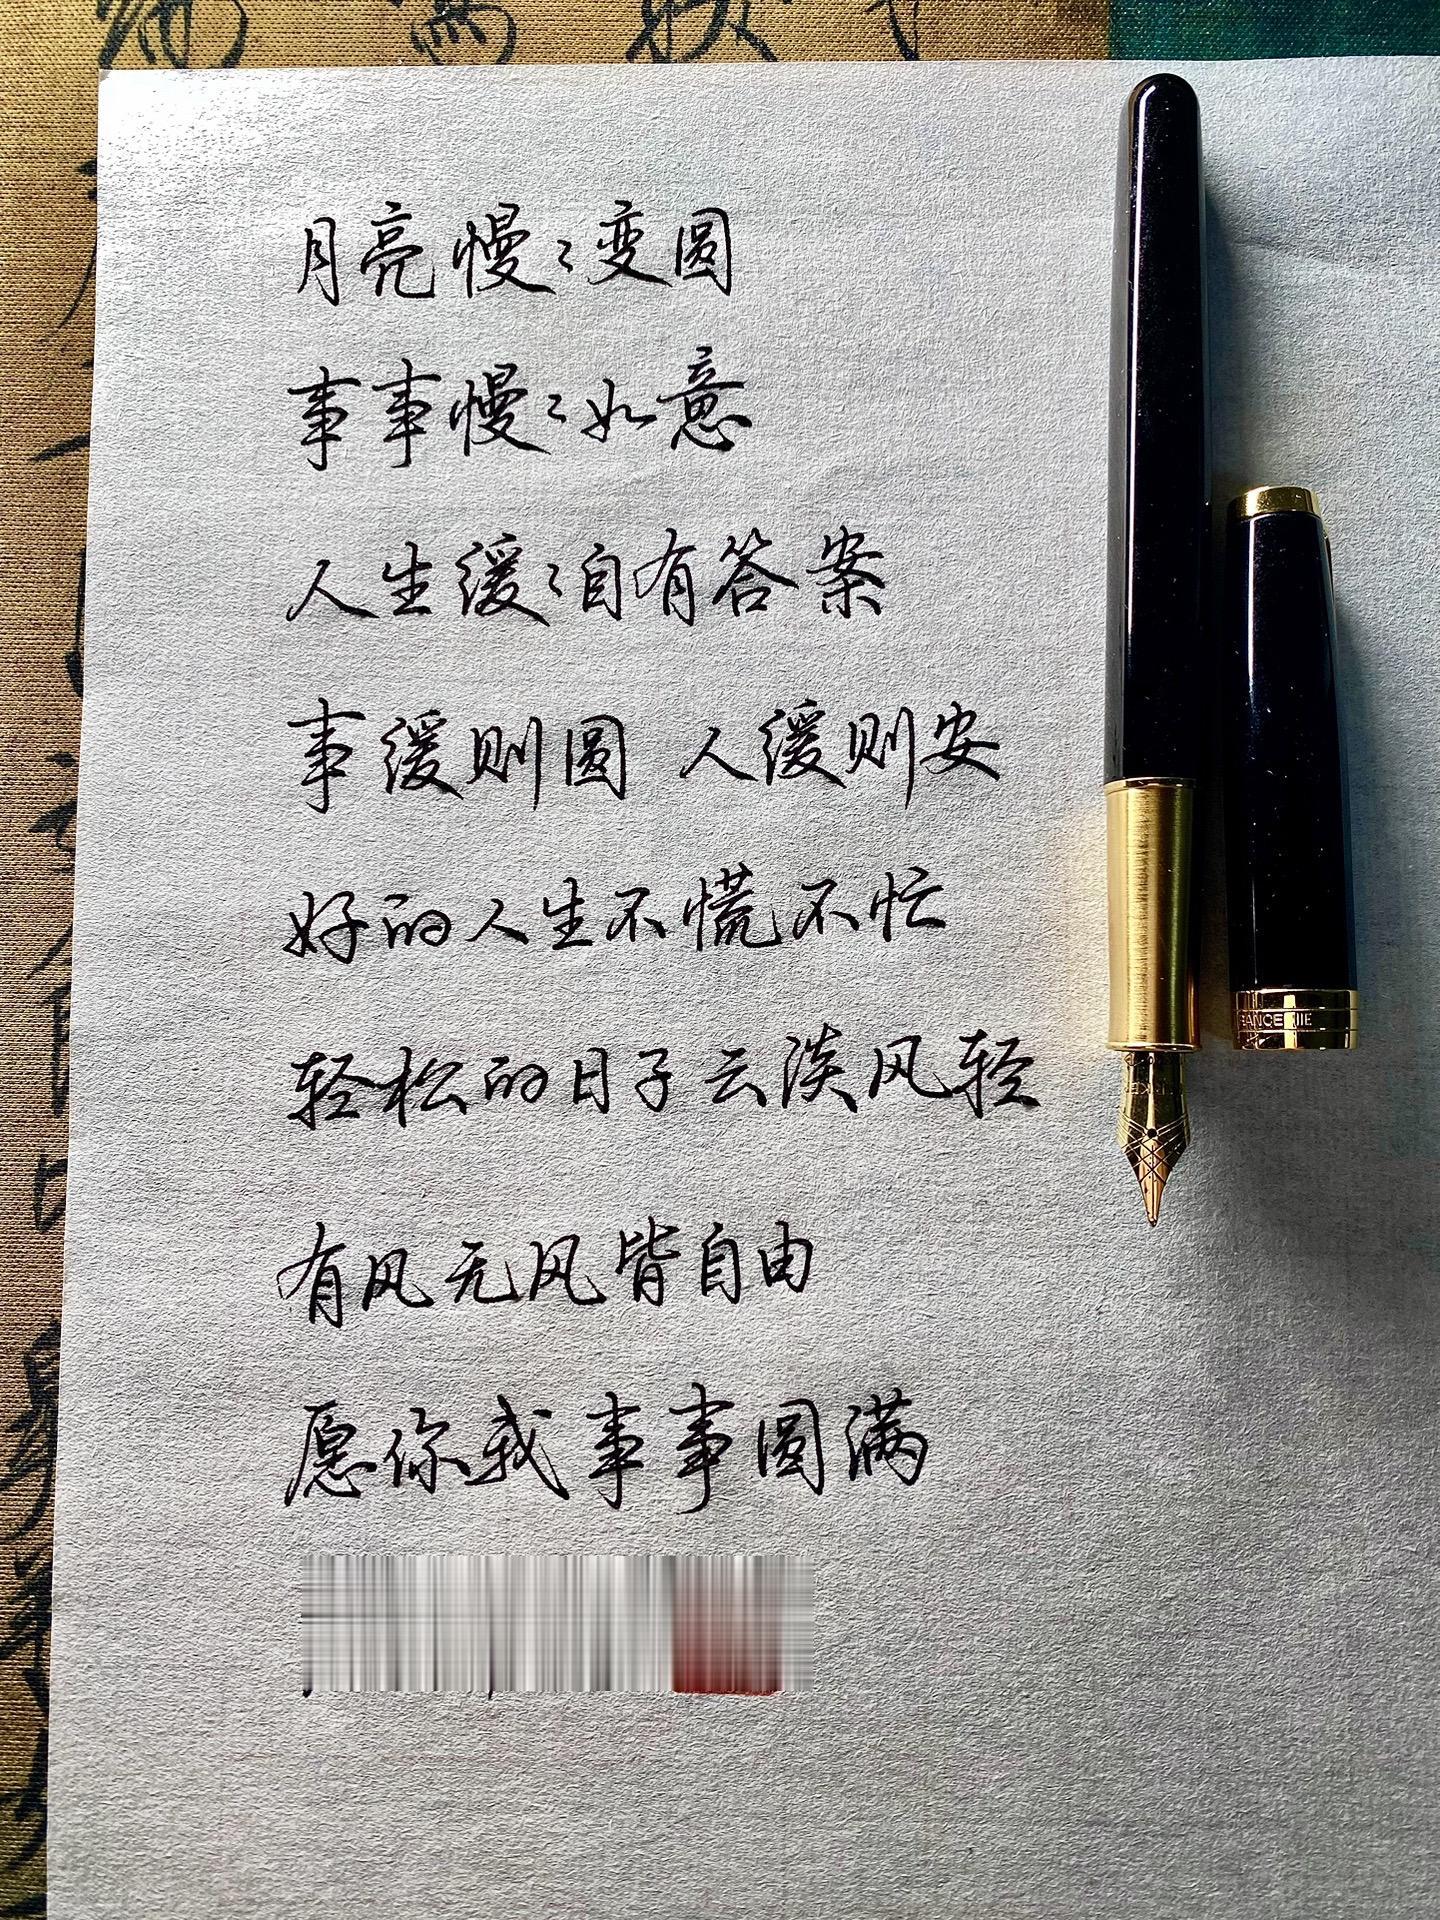 月亮慢々变圆
事事慢々如意
人生缓々自有答案
事缓则圆 人缓则安
好的人生不慌不忙
轻松的日子云淡风轻
有风无风皆自由
愿你我事事圆满